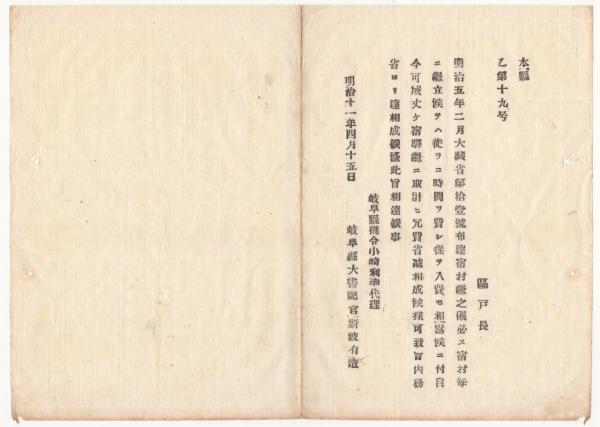 本縣
乙第十九号
區戸長
明治五年二月大藏省第拾壹號布達宿村繼之儀必ス宿村每
ニ繼立候テハ徒ラニ時間ヲ費シ從テ入費モ相嵩候ニ付自
今可成丈ケ宿驛繼ニ取計ヒ冗費省减相成候樣可致旨内務
省ヨリ達相成候條此旨相達候事
岐阜縣權令小崎利準代理
明治十一年四月十五日
岐阜縣大書記官斯波有造